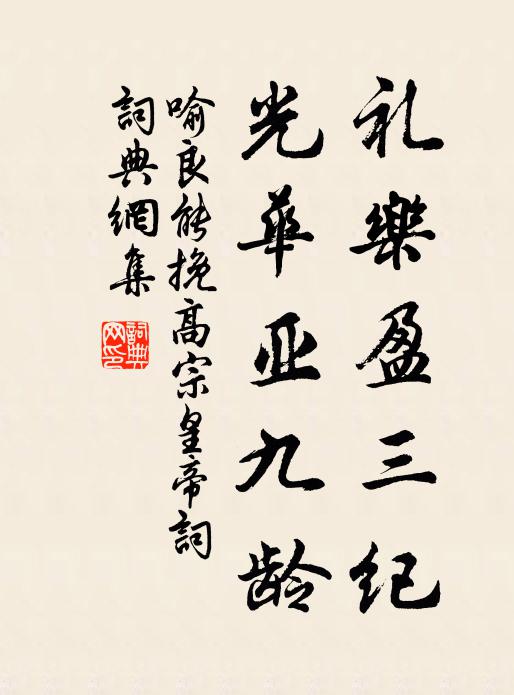 礼樂盈三纪
光華亚九龄
喻良能挽高宗皇帝詞
詞典網集
詞典網印